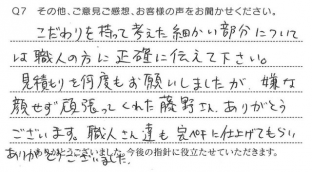 Q7 その他、ご意見ご感想、お客様の声をお聞かせください。
こだわりを持って考えた細かい部分について
は職人の方に正確に伝えて下さい。
見積もりを何度もお願いしましたが、嫌な
顔せず頑張ってくれた藤野さん、ありがとう
ございます。職人さん達も完ペキに仕上げてもらい
ありがとうございました。
ありがとうございました。今後の指針に役立たせていただきます。